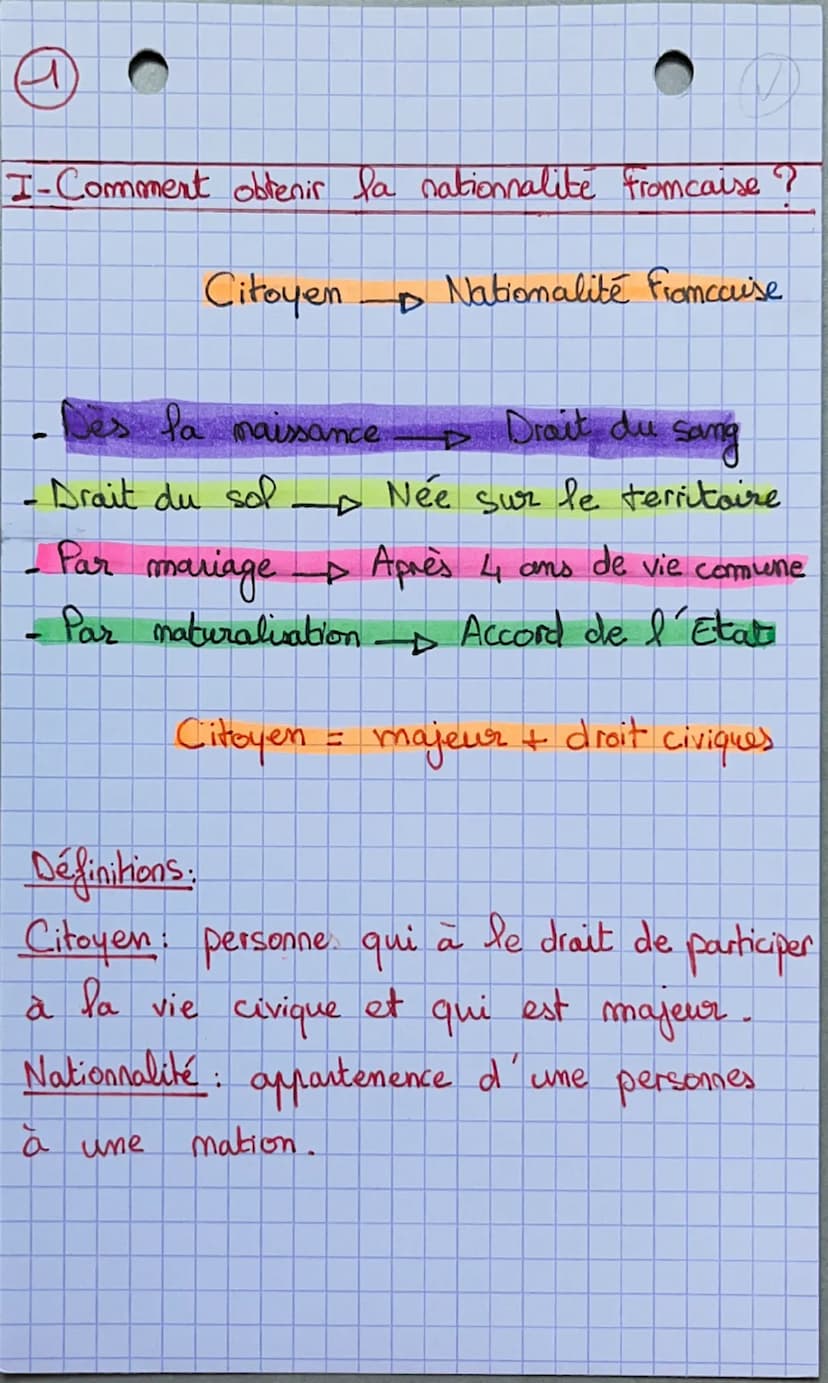 1
I-Comment obtenir la nationnalité francaise ?
Citoyen → Nationalité francaise
- Dès la naissance → Droit du sang
- Droit du sol → Née sur le territoire
- Par mariage → Après 4 ans de vie commune
- Par naturalisation → Accord de l'Etat
Citoyen = majeur + droit civiques
Définitions:
Citoyen: personne qui à le droit de participer
à la vie civique et qui est majeur.
Nationnalité : appartenence d'une personnes
à une nation.